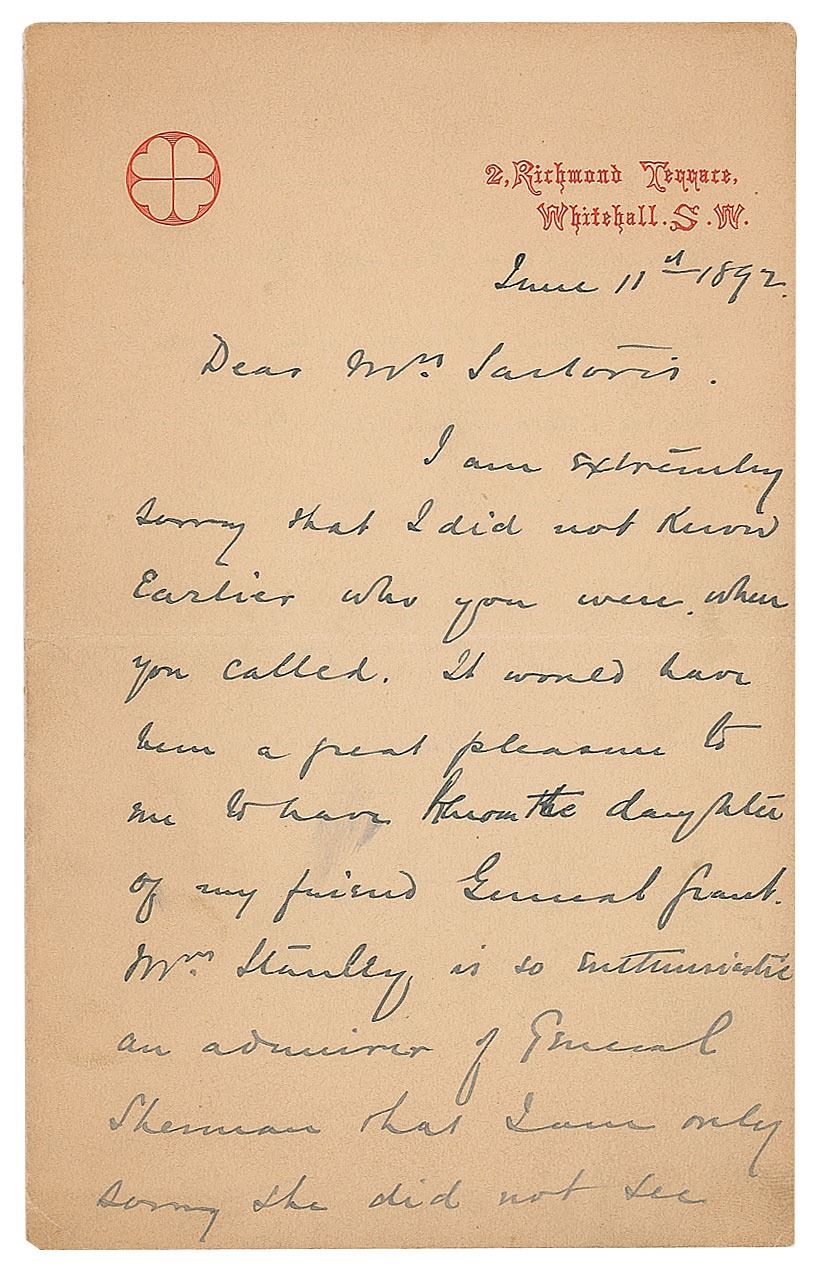 2, Richmond Terrace,
Whitehall. S.W.
June 11th 1892.
Dear Mrs. Sartoris.
I am extremely
sorry that I did not know
Earlier who you were, when
you called. It would have
been a great pleasure to
me to have known the daughter
of my friend General Grant.
Mrs. Stanley, is so enthusiastic
an admirer of General
Sherman that I am only
sorry she did not see